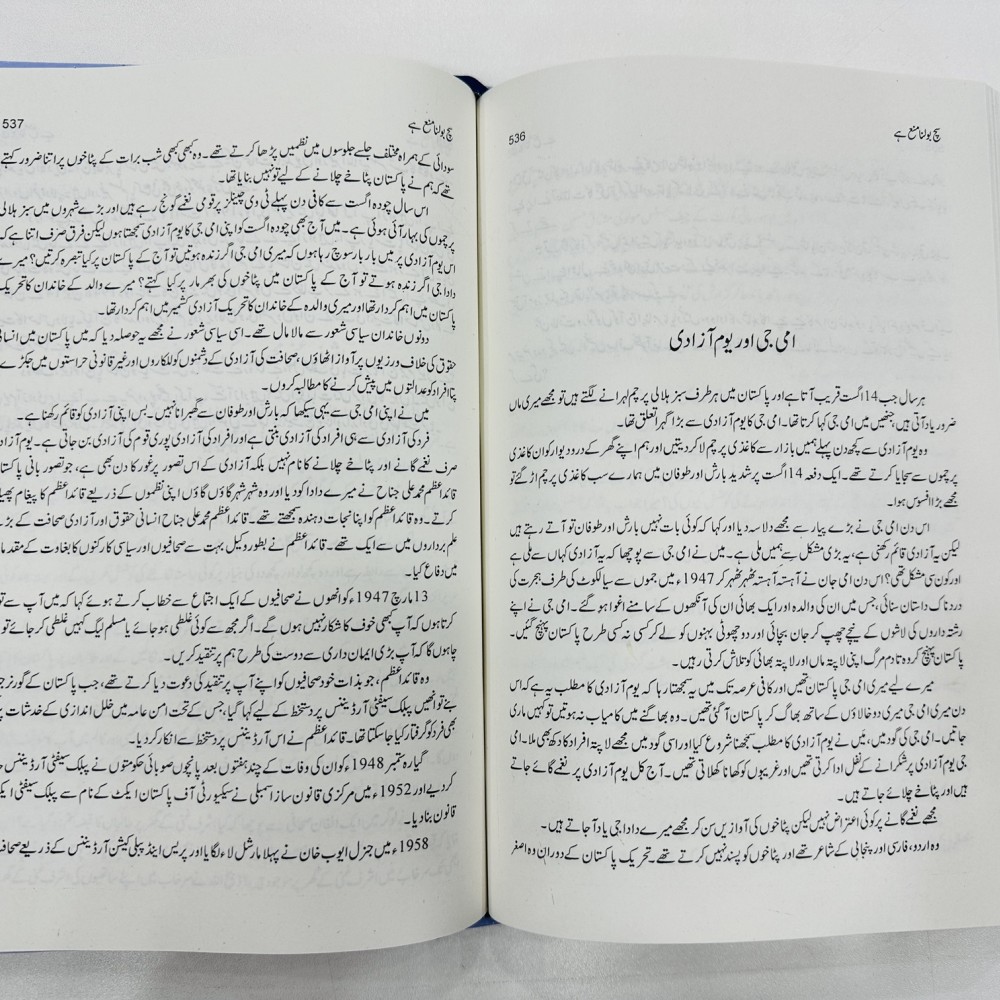 سچ بولنا منع ہے
536
امی جی اور یوم آزادی
ہر سال جب 14 اگست قریب آتا ہے اور پاکستان میں ہر طرف سبز ہلالی پرچم لہرانے لگتے ہیں تو مجھے میری ماں
ضرور یاد آتی ہیں، جنھیں میں امی جی کہا کرتا تھا۔ امی جی کا یوم آزادی سے بڑا گہرا تعلق تھا۔
وہ یوم آزادی سے کچھ دن پہلے ہمیں بازار سے کاغذی پرچم لا کر دیتیں اور ہم اپنے گھر کے در و دیوار کو ان کاغذی
پرچموں سے سجایا کرتے تھے۔ ایک دفعہ 14 اگست پر شدید بارش اور طوفان میں ہمارے سب کاغذی پرچم اڑ گئے تو
مجھے بڑا افسوس ہوا۔
اس دن امی جی نے بڑے پیار سے مجھے دلاسہ دیا اور کہا کہ کوئی بات نہیں بارش اور طوفان تو آتے رہتے ہیں
لیکن یہ آزادی قائم رکھنی ہے، یہ بڑی مشکل سے ہمیں ملی ہے۔ میں نے امی جی سے پوچھا کہ یہ آزادی کہاں سے ملی ہے
اور کون سی مشکل تھی؟ اس دن امی جان نے آہستہ آہستہ ٹھہر ٹھہر کر 1947ء میں جموں سے سیالکوٹ کی طرف ہجرت کی
دردناک داستان سنائی، جس میں ان کی والدہ اور ایک بھائی ان کی آنکھوں کے سامنے اغوا ہو گئے۔ امی جی نے اپنے
رشتہ داروں کی لاشوں کے نیچے چھپ کر جان بچائی اور دو چھوٹی بہنوں کو لے کر کسی نہ کسی طرح پاکستان پہنچ گئیں۔
پاکستان پہنچ کر وہ تادم مرگ اپنی لاپتہ ماں اور لاپتہ بھائی کو تلاش کرتی رہیں۔
میرے لیے میری امی جی پاکستان تھیں اور کافی عرصہ تک میں یہ سمجھتا رہا کہ یوم آزادی کا مطلب یہ ہے کہ اس
دن میری امی جی میری دو خالاؤں کے ساتھ بھاگ کر پاکستان آ گئی تھیں۔ وہ بھاگنے میں کامیاب نہ ہوتیں تو کہیں ماری
جاتیں۔ امی جی کی گود میں، میں نے یوم آزادی کا مطلب سمجھنا شروع کیا اور اسی گود میں مجھے لاپتہ افراد کا دکھ بھی ملا۔ امی
جی یوم آزادی پر شکرانے کے نفل ادا کرتی تھیں اور غریبوں کو کھانا کھلاتی تھیں۔ آج کل یوم آزادی پر نغمے گائے جاتے
ہیں اور پٹاخے چلائے جاتے ہیں۔
مجھے نغمے گانے پر کوئی اعتراض نہیں لیکن پٹاخوں کی آوازیں سن کر مجھے میرے دادا جی یاد آ جاتے ہیں۔
وہ اردو، فارسی اور پنجابی کے شاعر تھے اور پٹاخوں کو پسند نہیں کرتے تھے۔ تحریک پاکستان کے دوران وہ اصغر
سچ بولنا منع ہے
537
سودائی کے ہمراہ مختلف جلسے جلوسوں میں نظمیں پڑھا کرتے تھے۔ وہ کبھی کبھی شب برات کے پٹاخوں پر اتنا ضرور کہتے
تھے کہ ہم نے پاکستان پٹاخے چلانے کے لیے تو نہیں بنایا تھا۔
اس سال چودہ اگست سے کافی دن پہلے ٹی وی چینلز پر قومی نغمے گونج رہے ہیں اور بڑے شہروں میں سبز ہلالی
پرچموں کی بہار آئی ہوئی ہے۔ میں آج بھی چودہ اگست کو اپنی امی جی کا یوم آزادی سمجھتا ہوں لیکن فرق صرف اتنا ہے کہ
اس یوم آزادی پر میں بار بار سوچ رہا ہوں کہ میری امی جی اگر زندہ ہوتیں تو آج کے پاکستان پر کیا تبصرہ کرتیں؟ میرے
دادا جی اگر زندہ ہوتے تو آج کے پاکستان میں پٹاخوں کی بھرمار پر کیا کہتے؟ میرے والد کے خاندان کا تحریک
پاکستان میں اہم کردار تھا اور میری والدہ کے خاندان کا تحریک آزادی کشمیر میں اہم کردار تھا۔
دونوں خاندان سیاسی شعور سے مالا مال تھے۔ اسی سیاسی شعور نے مجھے یہ حوصلہ دیا کہ میں پاکستان میں انسانی
حقوق کی خلاف ورزیوں پر آواز اٹھاؤں، صحافت کی آزادی کے دشمنوں کو للکاروں اور غیر قانونی حراستوں میں جکڑے
افراد کو عدالتوں میں پیش کرنے کا مطالبہ کروں۔
میں نے اپنی امی جی سے یہی سیکھا کہ بارش اور طوفان سے گھبرانا نہیں۔ بس اپنی آزادی کو قائم رکھنا ہے۔
فرد کی آزادی سے ہی افراد کی آزادی بنتی ہے اور افراد کی آزادی پوری قوم کی آزادی بن جاتی ہے۔ یوم آزادی
صرف نغمے گانے اور پٹاخے چلانے کا نام نہیں بلکہ آزادی کے اس تصور پر غور کا دن بھی ہے، جو تصور بانی
قائداعظم محمد علی جناح نے میرے دادا کو دیا اور وہ شہر شہر گاؤں گاؤں اپنی نظموں کے ذریعے قائداعظم کا پیغام
کرتے۔ وہ قائداعظم کو اپنا نجات دہندہ سمجھتے تھے۔ قائداعظم محمد علی جناح انسانی حقوق اور آزادی صحافت کے بڑے
علم برداروں میں سے ایک تھے۔ قائداعظم نے بطور وکیل بہت سے صحافیوں اور سیاسی کارکنوں کا بغاوت کے
میں دفاع کیا۔
13 مارچ 1947ء کو انھوں نے صحافیوں کے ایک اجتماع سے خطاب کرتے ہوئے کہا کہ میں آپ سے
کرتا ہوں کہ آپ بھی خوف کا شکار نہیں ہوں گے۔ اگر مجھ سے کوئی غلطی ہو جائے یا مسلم لیگ کہیں غلطی کر جائے تو
چاہوں گا کہ آپ بڑی ایمان داری سے دوست کی طرح ہم پر تنقید کریں۔
وہ قائداعظم، جو بذات خود صحافیوں کو اپنے آپ پر تنقید کی دعوت دیا کرتے تھے، جب پاکستان کے گورنر
بنے تو انھیں پبلک سیفٹی آرڈیننس پر دستخط کے لیے کہا گیا، جس کے تحت امن عامہ میں خلل اندازی کے خدشات
بھی فرد کو گرفتار کیا جا سکتا تھا۔ قائداعظم نے اس آرڈیننس پر دستخط سے انکار کر دیا۔
گیارہ ستمبر 1948ء کو ان کی وفات کے چند ہفتوں بعد پانچوں صوبائی حکومتوں نے پبلک سیفٹی آرڈیننس
کر دیے اور 1952ء میں مرکزی قانون ساز اسمبلی نے سیکیورٹی آف پاکستان ایکٹ کے نام سے پبلک سیفٹی
قانون بنا دیا۔
1958ء میں جنرل ایوب خان نے پہلا مارشل لاء لگایا اور پریس اینڈ پبلی کیشن آرڈیننس کے ذریعے